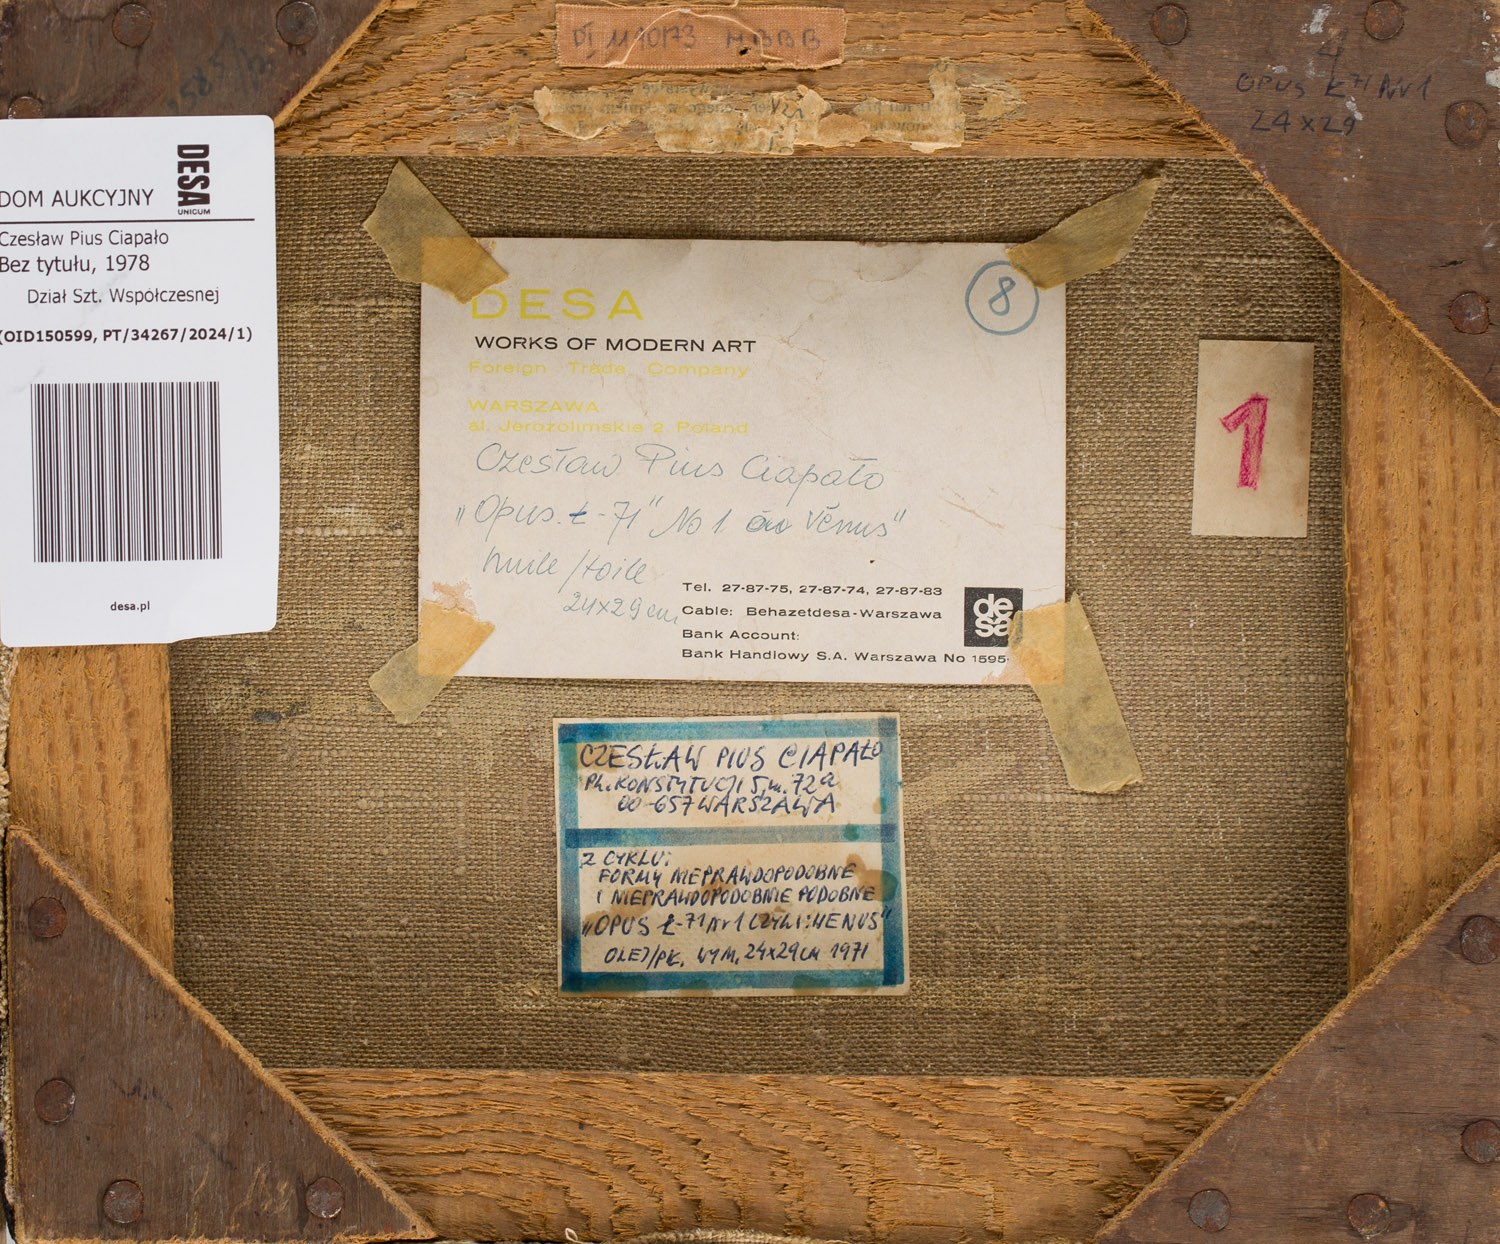 OPUS Ł-71 Nr 1
24x29
DESA
UNICUM
DOM AUKCYJNY
Czesław Pius Ciapało
Bez tytułu, 1978
Dział Szt. Współczesnej
(OID150599, PT/34267/2024/1)
desa.pl
8
DESA
WORKS OF MODERN ART
Foreign Trade Company
WARSZAWA
al. Jerozolimskie 2 Poland
Czesław Pius Ciapało
„Opus. Ł-71" No 1 ou Vénus"
huile/toile
24x29 cm
Tel. 27-87-75, 27-87-74, 27-87-83
Cable: Behazetdesa-Warszawa
Bank Account:
Bank Handlowy S.A. Warszawa No 1595-
de
sa
1
CZESŁAW PIUS CIAPAŁO
PL. KONSTYTUCJI 5, m. 72a
00-657 WARSZAWA
Z CYKLU:
FORMY NIEPRAWDOPODOBNE
I NIEPRAWDOPODOBNIE PODOBNE
„OPUS Ł-71 Nr 1 CZYLI: WENUS"
OLEJ/PŁ. WYM. 24x29 CM 1971